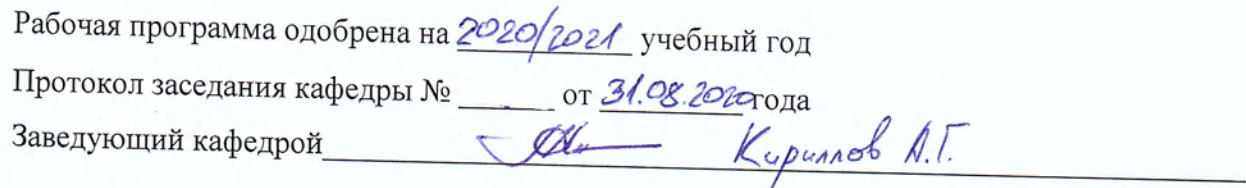 Рабочая программа одобрена на 2020/2021 учебный год
Протокол заседания кафедры № ______ от 31.08.2020 года
Заведующий кафедрой Кириллов А.Г.